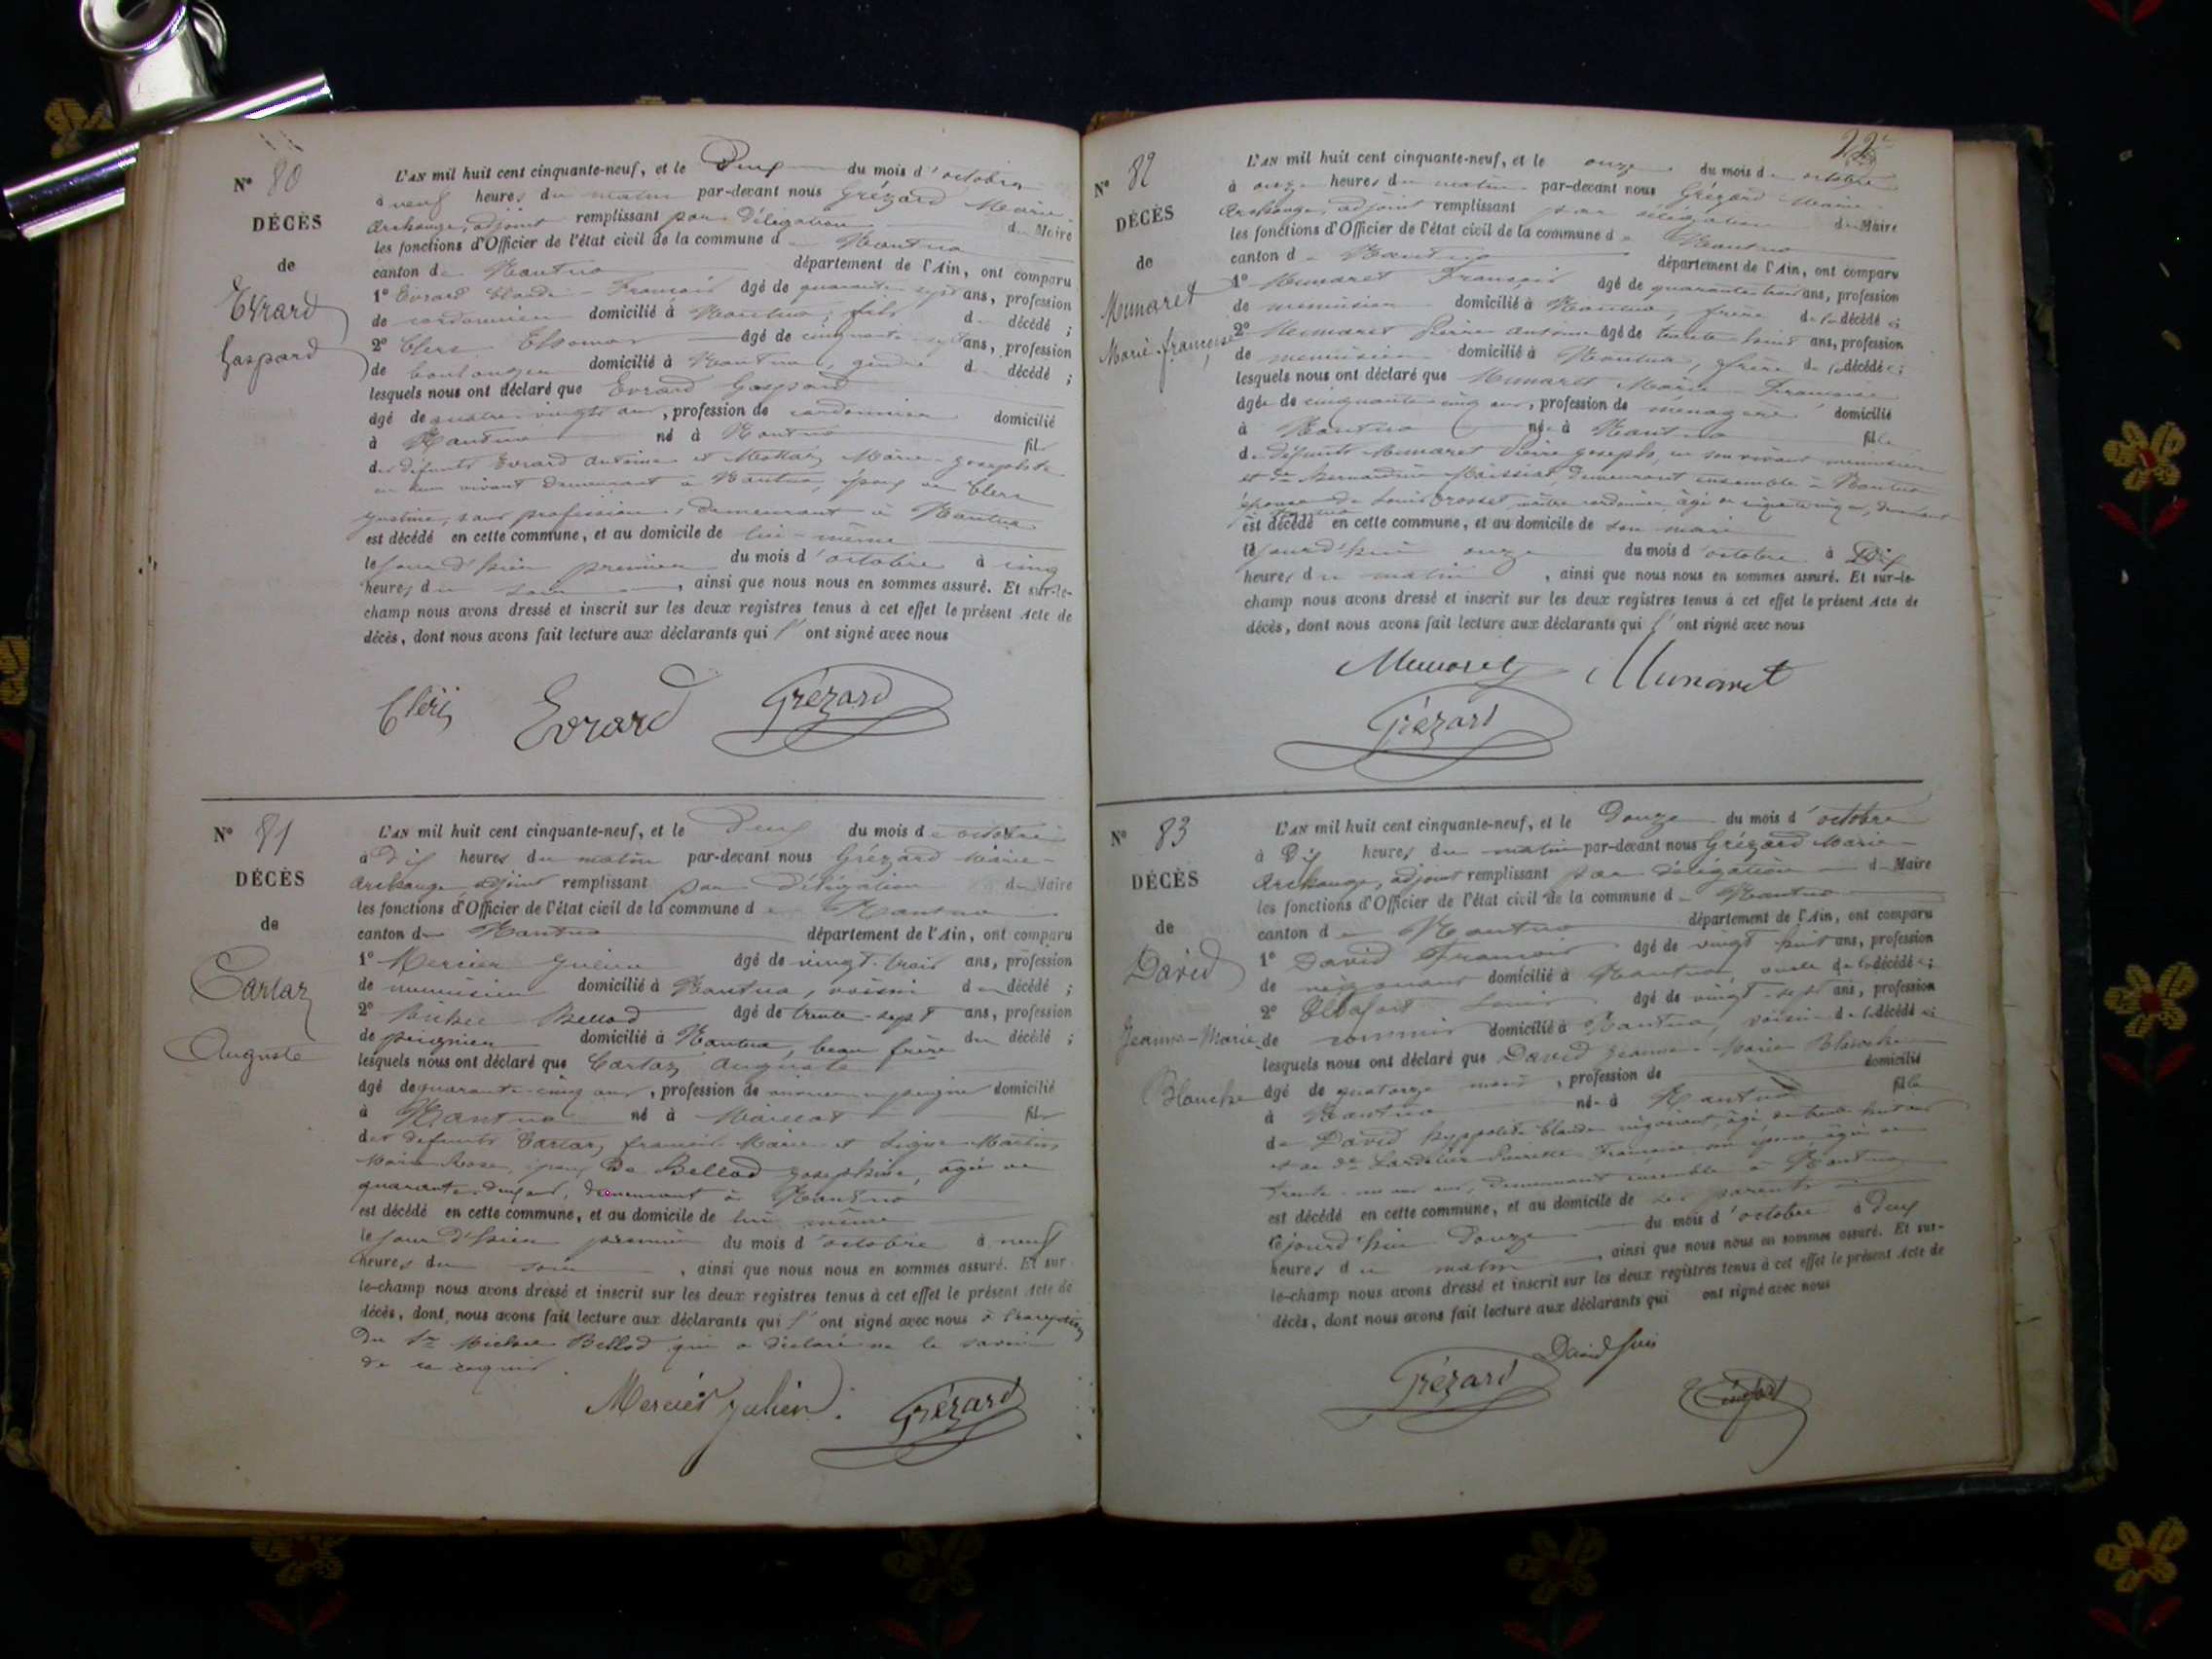 N° 80
DÉCÈS
de
Evrard
Gaspard
L'AN mil huit cent cinquante-neuf, et le Deux du mois d'octobre
à neuf heures du matin par-devant nous Grézard Marie-
Archange, adjoint remplissant par délégation du Maire
les fonctions d'Officier de l'état civil de la commune de Nantua
canton de Nantua département de l'Ain, ont comparu
1° Evrard Claude-François âgé de quarante-sept ans, profession
de cordonnier domicilié à Nantua, fils du décédé ;
2° Clerc Thomas âgé de cinquante-sept ans, profession
de boulanger domicilié à Nantua, gendre du décédé ;
lesquels nous ont déclaré que Evrard Gaspard
âgé de quatre-vingts ans, profession de cordonnier domicilié
à Nantua né à Nantua fils
des défunts Evrard Antoine et Mottaz Marie-Josephte
en leur vivant demeurant à Nantua, époux de Clerc
Justine, sans profession, demeurant à Nantua
est décédé en cette commune, et au domicile de lui-même
le jour d'hier premier du mois d'octobre à cinq
heures du soir, ainsi que nous nous en sommes assuré. Et sur-le-
champ nous avons dressé et inscrit sur les deux registres tenus à cet effet le présent Acte de
décès, dont nous avons fait lecture aux déclarants qui l'ont signé avec nous
Clerc Evrard Grézard
N° 81
DÉCÈS
de
Carlaz
Auguste
L'AN mil huit cent cinquante-neuf, et le Deux du mois de octobre
à Dix heures du matin par-devant nous Grézard Marie-
Archange adjoint remplissant par délégation du Maire
les fonctions d'Officier de l'état civil de la commune de Nantua
canton de Nantua département de l'Ain, ont comparu
1° Mercier Julien âgé de vingt-trois ans, profession
de menuisier domicilié à Nantua, voisin du décédé ;
2° Michel Bellod âgé de trente-sept ans, profession
de peignier domicilié à Nantua, beau frère du décédé ;
lesquels nous ont déclaré que Carlaz Auguste
âgé de quarante-cinq ans, profession de peigne domicilié
à Nantua né à Maillat fils
des défunts Carlaz François Marie et Martin
Marie Rose, époux De Bellod Josephine, âgée de
quarante-deux ans, demeurant à Nantua
est décédé en cette commune, et au domicile de lui même
le jour d'hier premier du mois d'octobre à neuf
heures du soir, ainsi que nous nous en sommes assuré. Et sur
le-champ nous avons dressé et inscrit sur les deux registres tenus à cet effet le présent Acte de
décès, dont nous avons fait lecture aux déclarants qui l'ont signé avec nous à l'exception
du Sr Michel Bellod qui a déclaré ne le savoir
de ce requis.
Mercier Julien. Grézard
22
N° 82
DÉCÈS
de
Munaret
Marie-françoise
L'AN mil huit cent cinquante-neuf, et le onze du mois de octobre
à onze heures du matin par-devant nous Grézard Marie-
Archange, adjoint remplissant par délégation du Maire
les fonctions d'Officier de l'état civil de la commune de Nantua
canton de Nantua département de l'Ain, ont comparu
1° Munaret François âgé de quarante trois ans, profession
de menuisier domicilié à Nantua, frère de la décédée ;
2° Munaret Pierre Antoine âgé de trente huit ans, profession
de menuisier domicilié à Nantua, frère de la décédée ;
lesquels nous ont déclaré que Munaret Marie-Françoise
âgée de cinquante-cinq ans, profession de ménagère domicilié
à Nantua née à Nantua fille
de défunts Munaret Pierre Joseph, en son vivant menuisier
et de Bernardine Maissiat, demeurant ensemble à Nantua
épouse de Louis Grosset, maître cordonnier, âgé de cinquante cinq ans, demeurant
est décédé en cette commune, et au domicile de son mari
le jourd'hui onze du mois d'octobre à Dix
heures du matin, ainsi que nous nous en sommes assuré. Et sur-le-
champ nous avons dressé et inscrit sur les deux registres tenus à cet effet le présent Acte de
décès, dont nous avons fait lecture aux déclarants qui l'ont signé avec nous
Munaret Munaret
Grézard
N° 83
DÉCÈS
de
David
Jeanne-Marie
Blanche
L'AN mil huit cent cinquante-neuf, et le Douze du mois d'octobre
à Dix heures du matin par-devant nous Grézard Marie-
Archange, adjoint remplissant par délégation du Maire
les fonctions d'Officier de l'état civil de la commune de Nantua
canton de Nantua département de l'Ain, ont comparu
1° David François âgé de vingt huit ans, profession
de négociant domicilié à Nantua, oncle de la décédée ;
2° Louis âgé de vingt-sept ans, profession
de commis domicilié à Nantua, voisin de la décédée ;
lesquels nous ont déclaré que David Jeanne-Marie Blanche
âgé de quatorze mois, profession de domicilié
à Nantua née à Nantua fille
de David hyppolite Claude négociant, âgé de trente huit ans
et de de Lardelier Pierrette Françoise son épouse, âgée de
trente-un ans, demeurant ensemble à Nantua
est décédé en cette commune, et au domicile de ses parents
le jourd'hui Douze du mois d'octobre à Deux
heures du matin, ainsi que nous nous en sommes assuré. Et sur-
le-champ nous avons dressé et inscrit sur les deux registres tenus à cet effet le présent Acte de
décès, dont nous avons fait lecture aux déclarants qui ont signé avec nous
David
Grézard